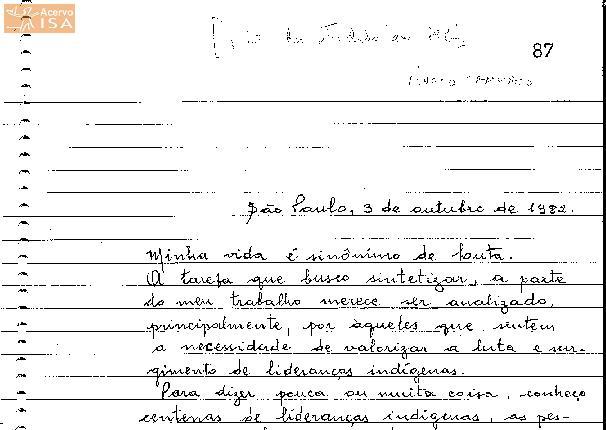 Acervo
ISA
87
São Paulo, 3 de outubro de 1982.
Minha vida é sinônimo de
A tarefa que busco sintetizar, a parte
do meu trabalho merece ser analizado,
principalmente, por àqueles que sentem
a necessidade de valorizar a luta e sur-
gimento de lideranças indígenas.
Para dizer pouca ou muita coisa, conheço
centenas de lideranças indígenas, as pes-